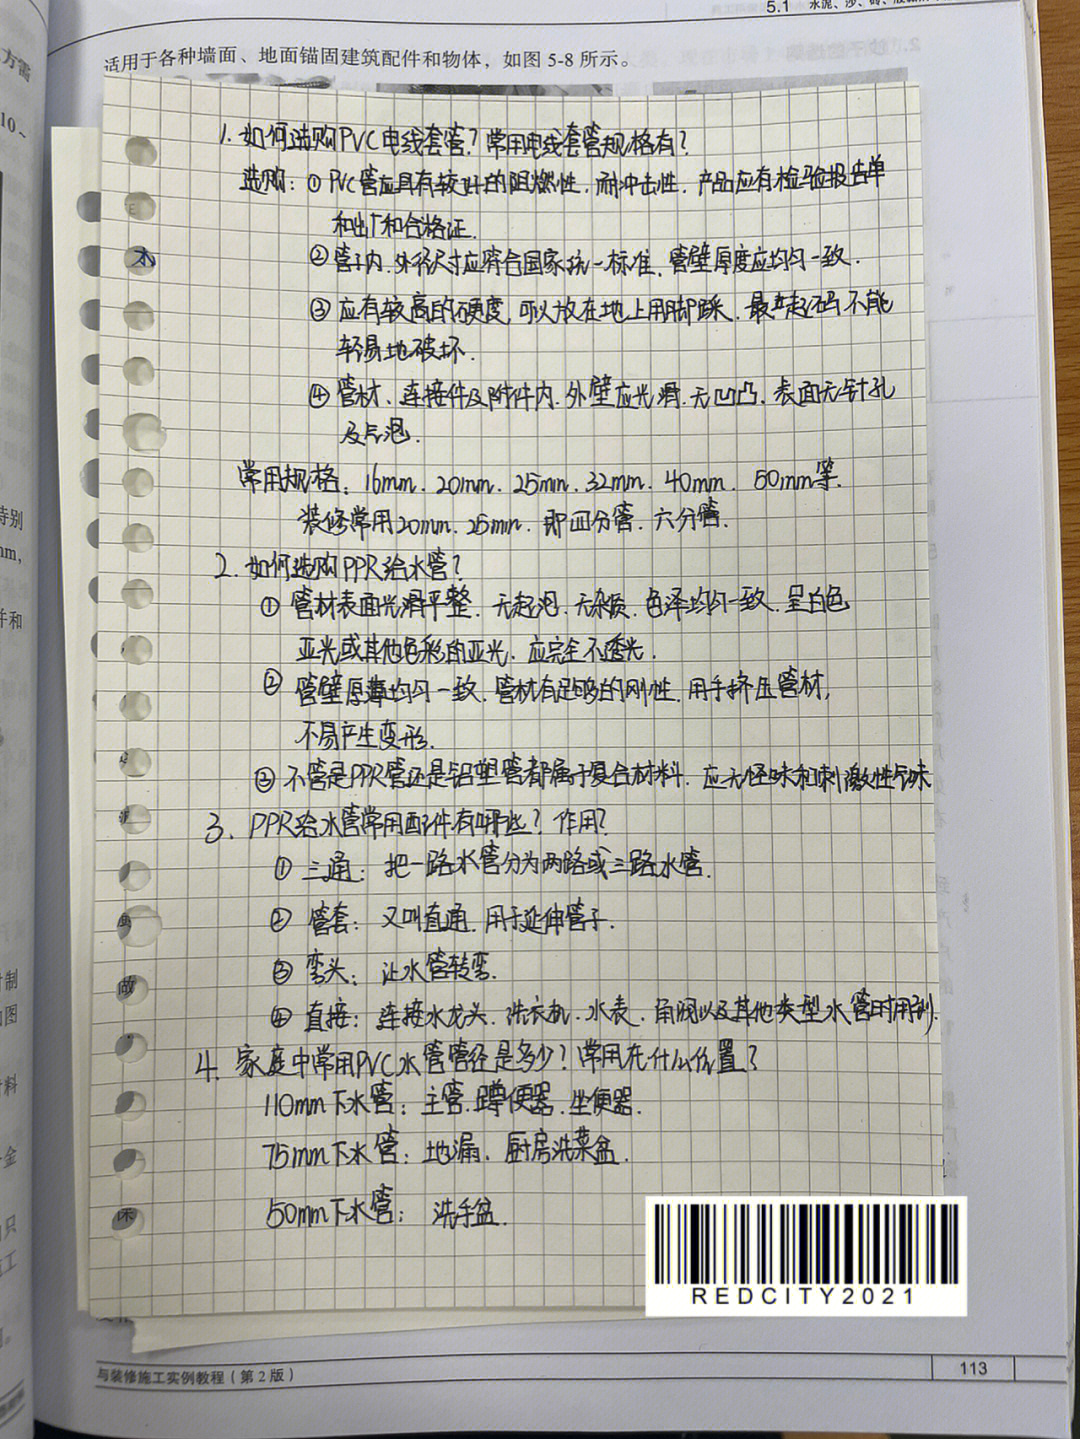 5.1 水泥、沙、砖、
适用于各种墙面、地面锚固建筑配件和物体，如图 5-8 所示。
方需
10~
1. 如何选购PVC电线套管？常用电线套管规格有？
选购：① PVC管应具有较好的阻燃性、耐冲击性、产品应有检验报告单
和出厂和合格证.
② 管子内、外径尺寸应符合国家统一标准、管壁厚度应均匀一致.
③ 应有较高的硬度,可以放在地上用脚踩、最起码不能
轻易地破坏.
④ 管材、连接件及附件内、外壁应光滑、无凹凸、表面无针孔
及气泡.
常用规格：16mm、20mm、25mm、32mm、40mm、50mm等.
装修常用20mm、25mm、即四分管、六分管.
特别
mm,
并和
2. 如何选购PPR给水管？
① 管材表面光滑平整、无起泡、无杂质、色泽均匀一致、呈白色
亚光或其他色彩的亚光、应完全不透光.
② 管壁厚薄均匀一致、管材有足够的刚性、用手挤压管材,
不易产生变形.
③ 不管是PPR管还是铝塑管都属于复合材料、应无怪味和刺激性气味
3. PPR给水管常用配件有哪些？作用？
① 三通：把一路水管分为两路或三路水管.
② 管套：又叫直通、用于延伸管子.
③ 弯头：让水管转弯.
④ 直接：连接水龙头、洗衣机、水表、角阀以及其他类型水管时用到.
4. 家庭中常用PVC水管管径是多少？常用在什么位置？
110mm下水管：主管、蹲便器、坐便器.
75mm下水管：地漏、厨房洗菜盆.
50mm下水管：洗手盆.
REDCITY2021
与装修施工实例教程（第2版）
113